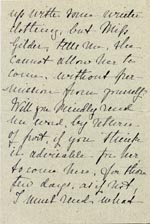 up with some winter
clothing, but Miss
Gilder, tells me, she
cannot allow her to
come, without per-
mission from yourself.
Will you kindly send
me word, by return
of post, if you think
it advisable for her
to come here, for those
few days, as if not,
I must send what